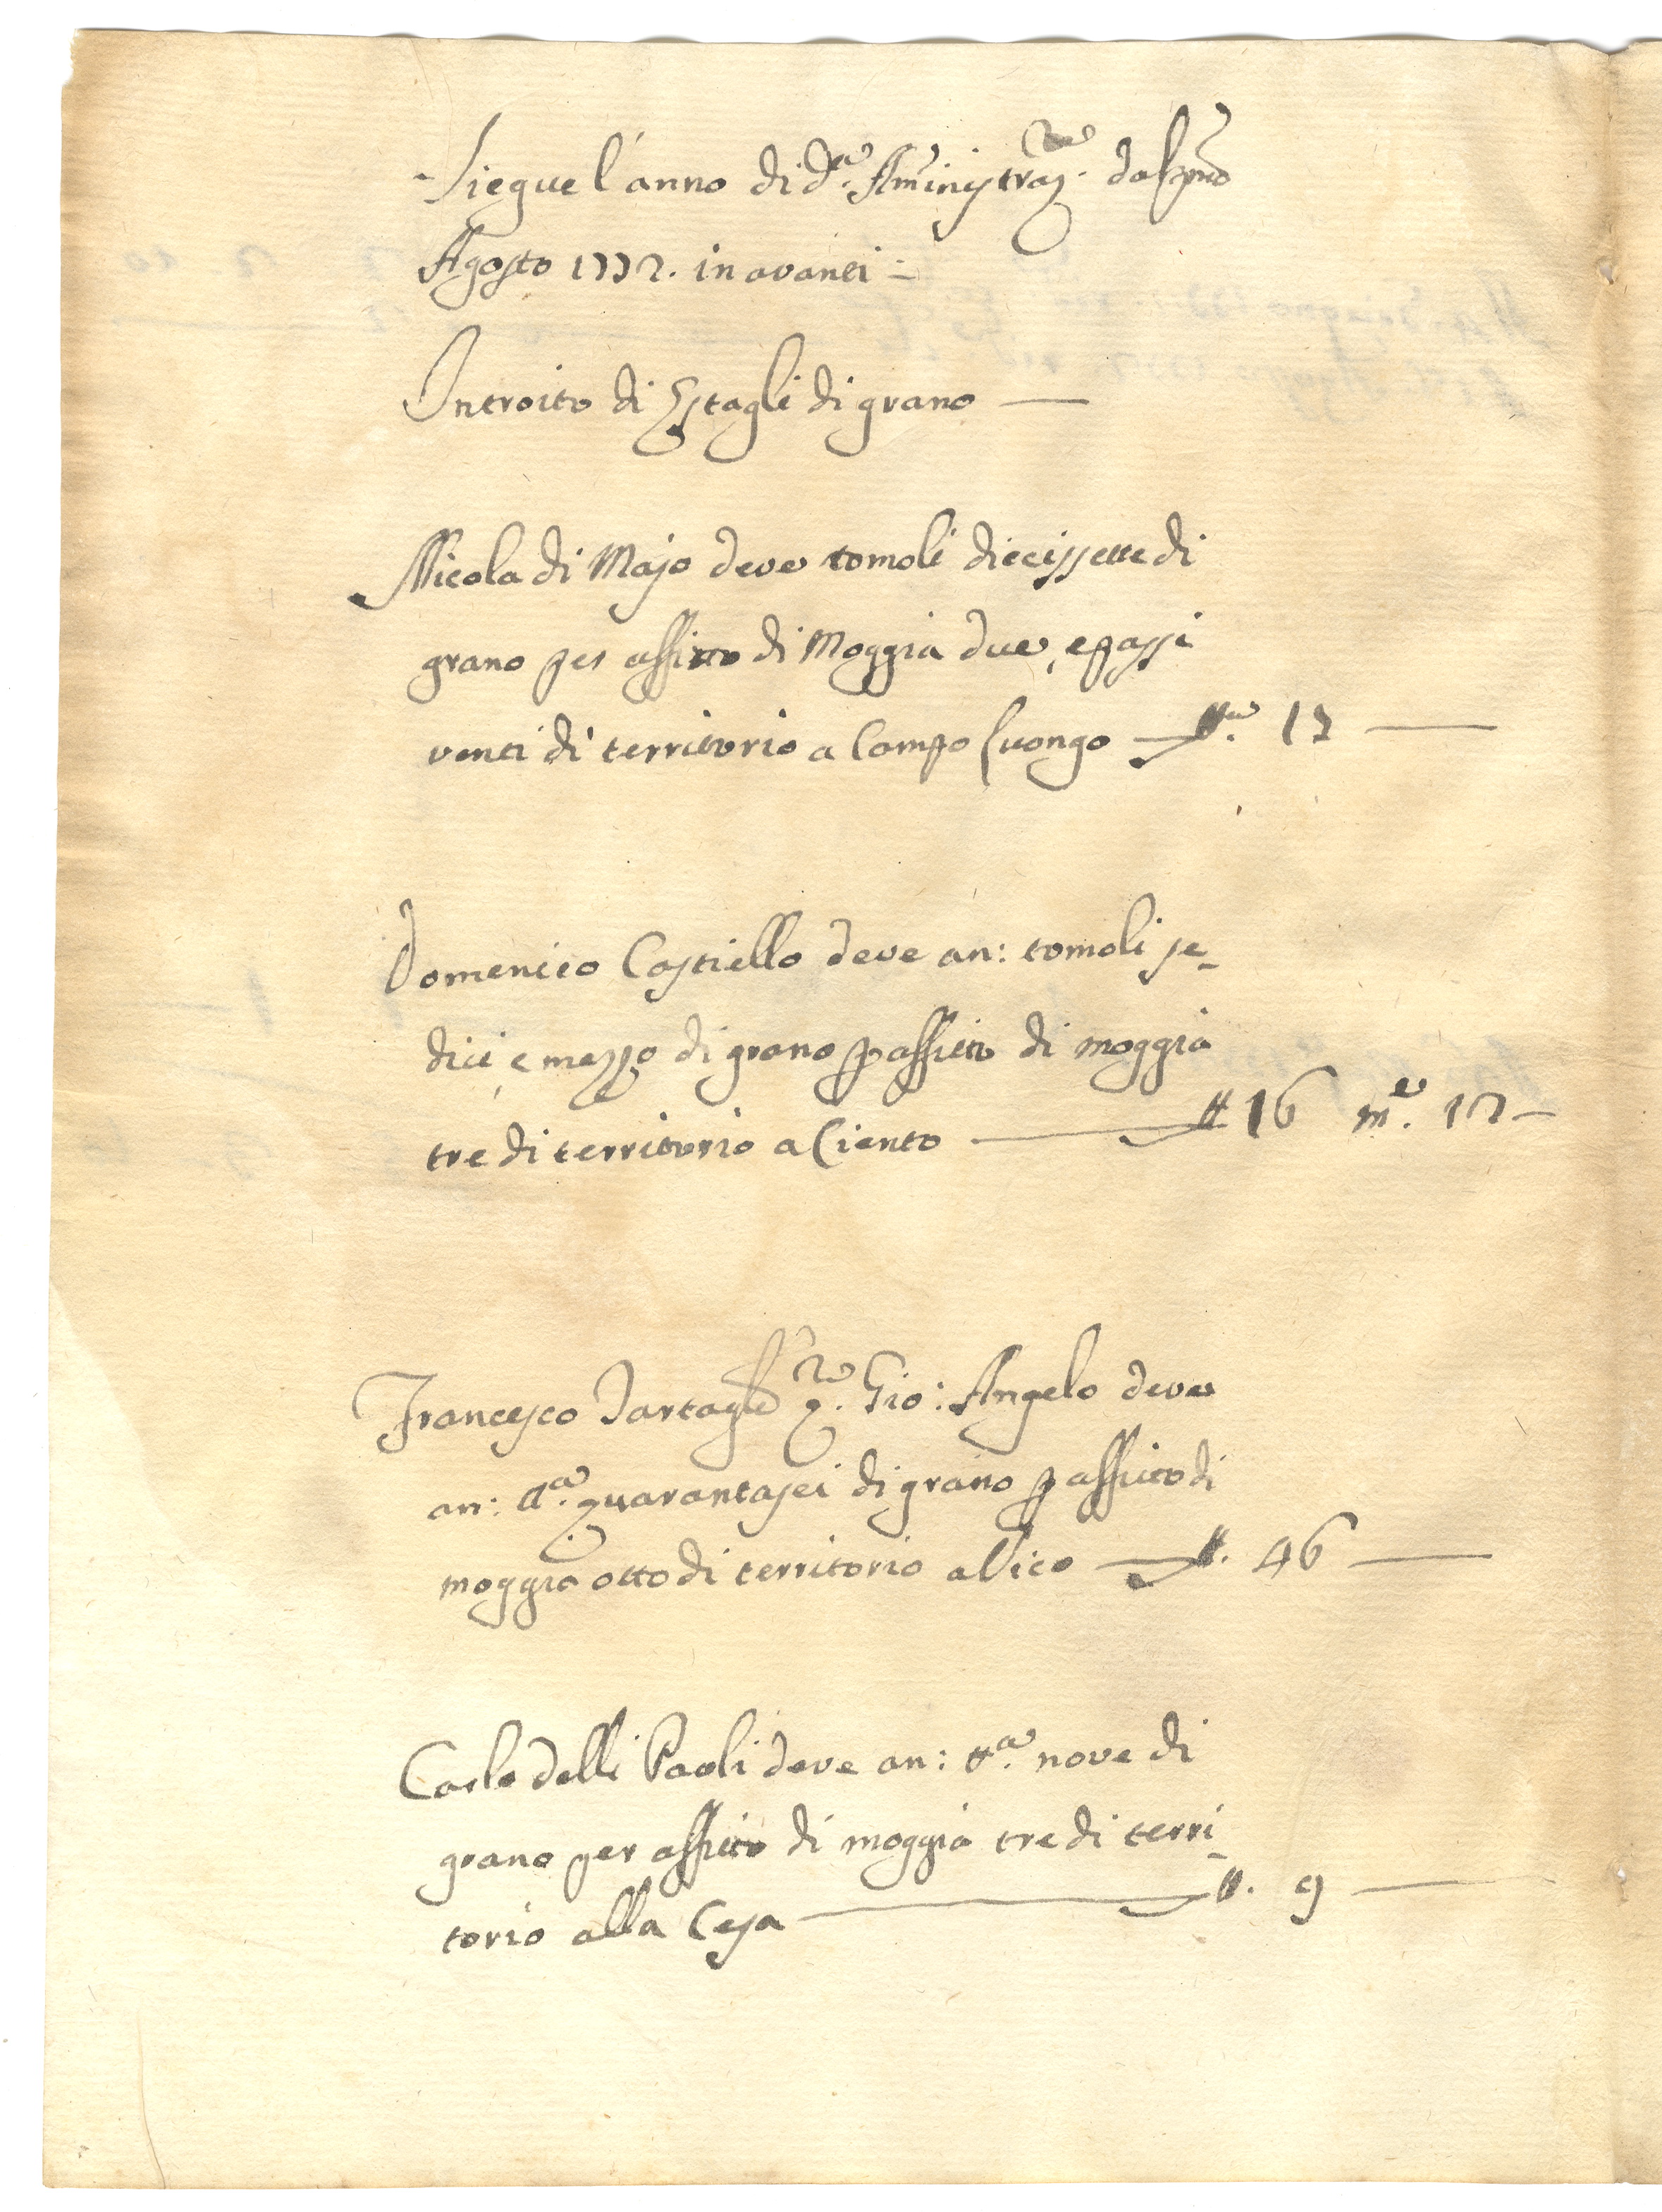 Siegue l'anno di d.ª Am̃inistraz.ne dal pmo
Agosto 1772. in avanti =
Introito di Estagli di grano —
Nicola di Majo deve tomoli diecissette di
grano per affitto di Moggia due, e passi
venti di territorio a Campo luongo — tt.ª 17 —
Domenico Castiello deve an: tomoli se-
dici, e mezzo di grano p affitto di moggia
tre di territorio a Ciento — tt 16 m.e 12 —
Francesco Tartagl q.m Gio: Angelo deve
an: tt.ª quarantasei di grano p affitto di
moggia otto di territorio a Vico — tt. 46 —
Carlo delli Paoli deve an: tt.ª nove di
grano per affitto di moggia tre di terri-
torio alla Cesa — tt. 9 —